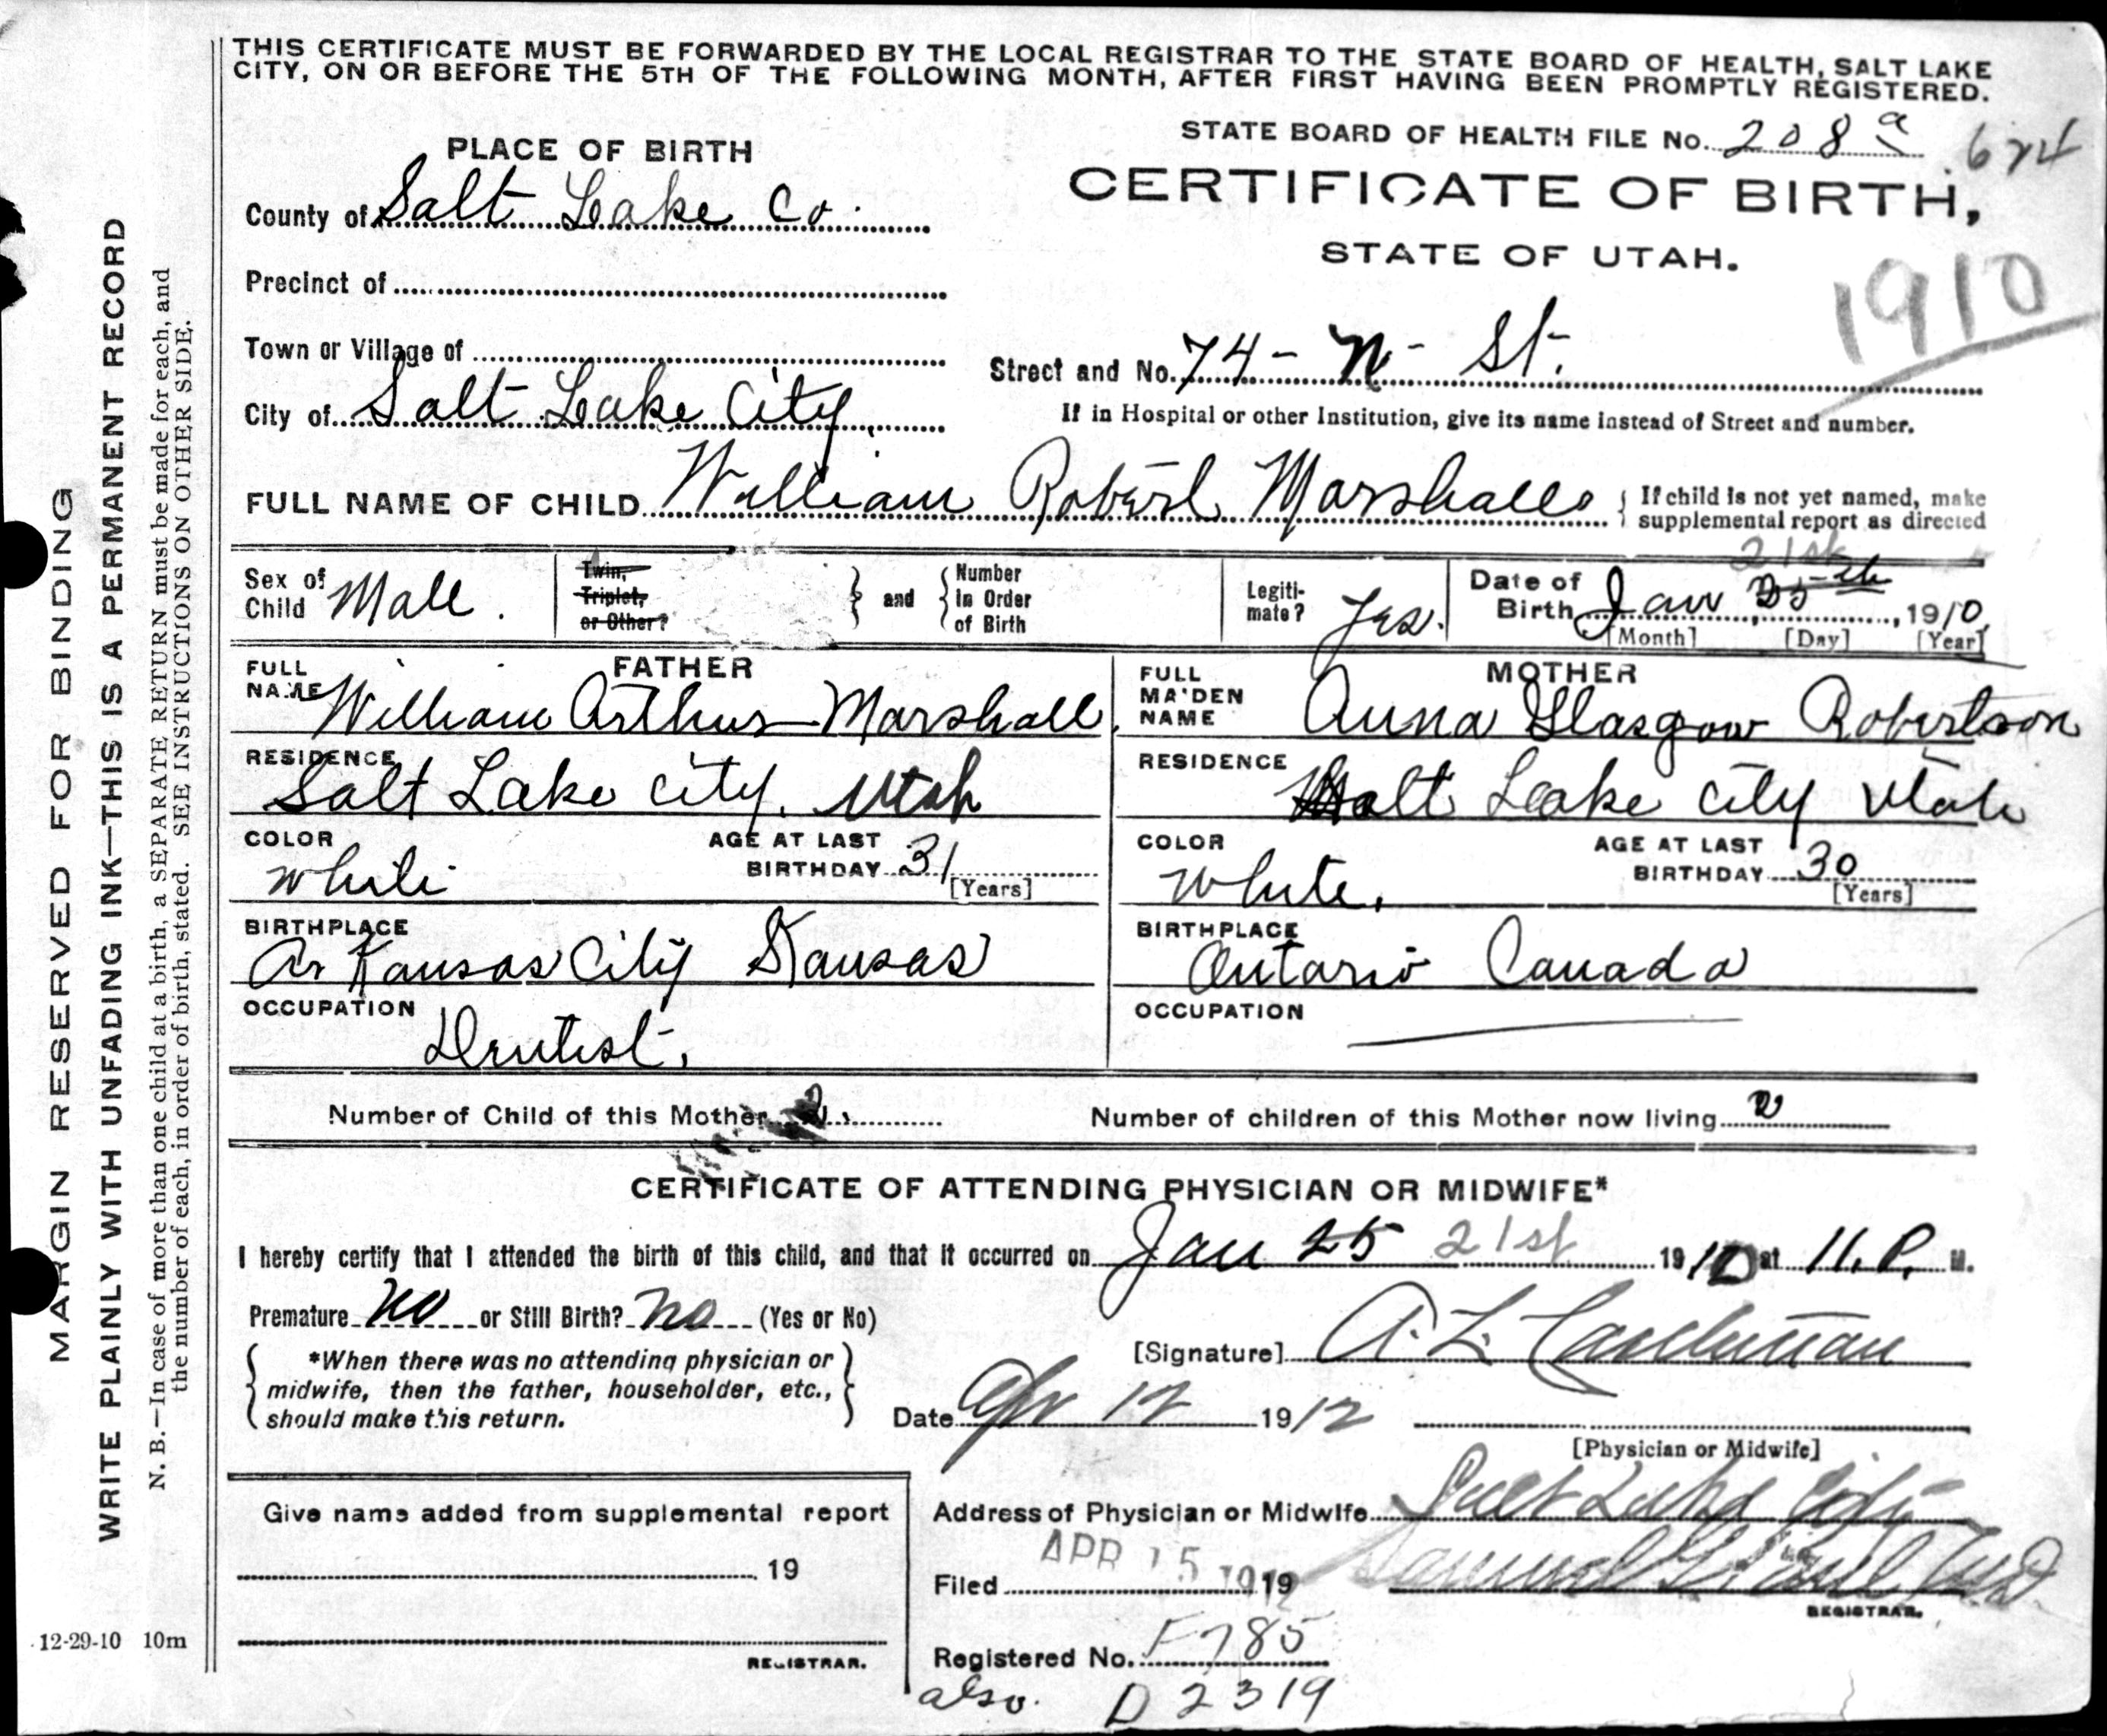 THIS CERTIFICATE MUST BE FORWARDED BY THE LOCAL REGISTRAR TO THE STATE BOARD OF HEALTH, SALT LAKE
CITY, ON OR BEFORE THE 5TH OF THE FOLLOWING MONTH, AFTER FIRST HAVING BEEN PROMPTLY REGISTERED.
STATE BOARD OF HEALTH FILE No. 208 a 624
PLACE OF BIRTH
CERTIFICATE OF BIRTH,
STATE OF UTAH.
1910
County of Salt Lake Co.
Precinct of
Town or Village of
City of Salt Lake City.
Street and No. 74 - N - St.
If in Hospital or other Institution, give its name instead of Street and number.
FULL NAME OF CHILD William Robert Marshall
If child is not yet named, make
supplemental report as directed
Sex of
Child Male.
Twin,
Triplet,
or Other?
and
Number
in Order
of Birth
Legiti-
mate? Yes.
21st
Date of
Birth Jan 25th, 1910
[Month] [Day] [Year]
FATHER
FULL
NAME William Arthur Marshall.
RESIDENCE
Salt Lake City, Utah
COLOR
White
AGE AT LAST
BIRTHDAY 31
[Years]
BIRTHPLACE
Arkansas City Kansas
OCCUPATION
Dentist.
MOTHER
FULL
MAIDEN
NAME Anna Glasgow Robertson
RESIDENCE
Salt Lake City Utah
COLOR
White.
AGE AT LAST
BIRTHDAY 30
[Years]
BIRTHPLACE
Ontario Canada
OCCUPATION
Number of Child of this Mother 2
Number of children of this Mother now living 2
CERTIFICATE OF ATTENDING PHYSICIAN OR MIDWIFE*
I hereby certify that I attended the birth of this child, and that it occurred on Jan 25 21st 1910 at 11. P. M.
Premature no or Still Birth? no (Yes or No)
*When there was no attending physician or
midwife, then the father, householder, etc.,
should make this return.
[Signature] A. L.
Date Apr 12 1912
[Physician or Midwife]
Address of Physician or Midwife Salt Lake City
Filed APR 15 1912 19
Samuel G. Paul M.D.
REGISTRAR.
Registered No. F785
also. D 2319
Give name added from supplemental report
19
REGISTRAR.
MARGIN RESERVED FOR BINDING
WRITE PLAINLY WITH UNFADING INK—THIS IS A PERMANENT RECORD
N. B.—In case of more than one child at a birth, a SEPARATE RETURN must be made for each, and
the number of each, in order of birth, stated. SEE INSTRUCTIONS ON OTHER SIDE.
12-29-10 10m